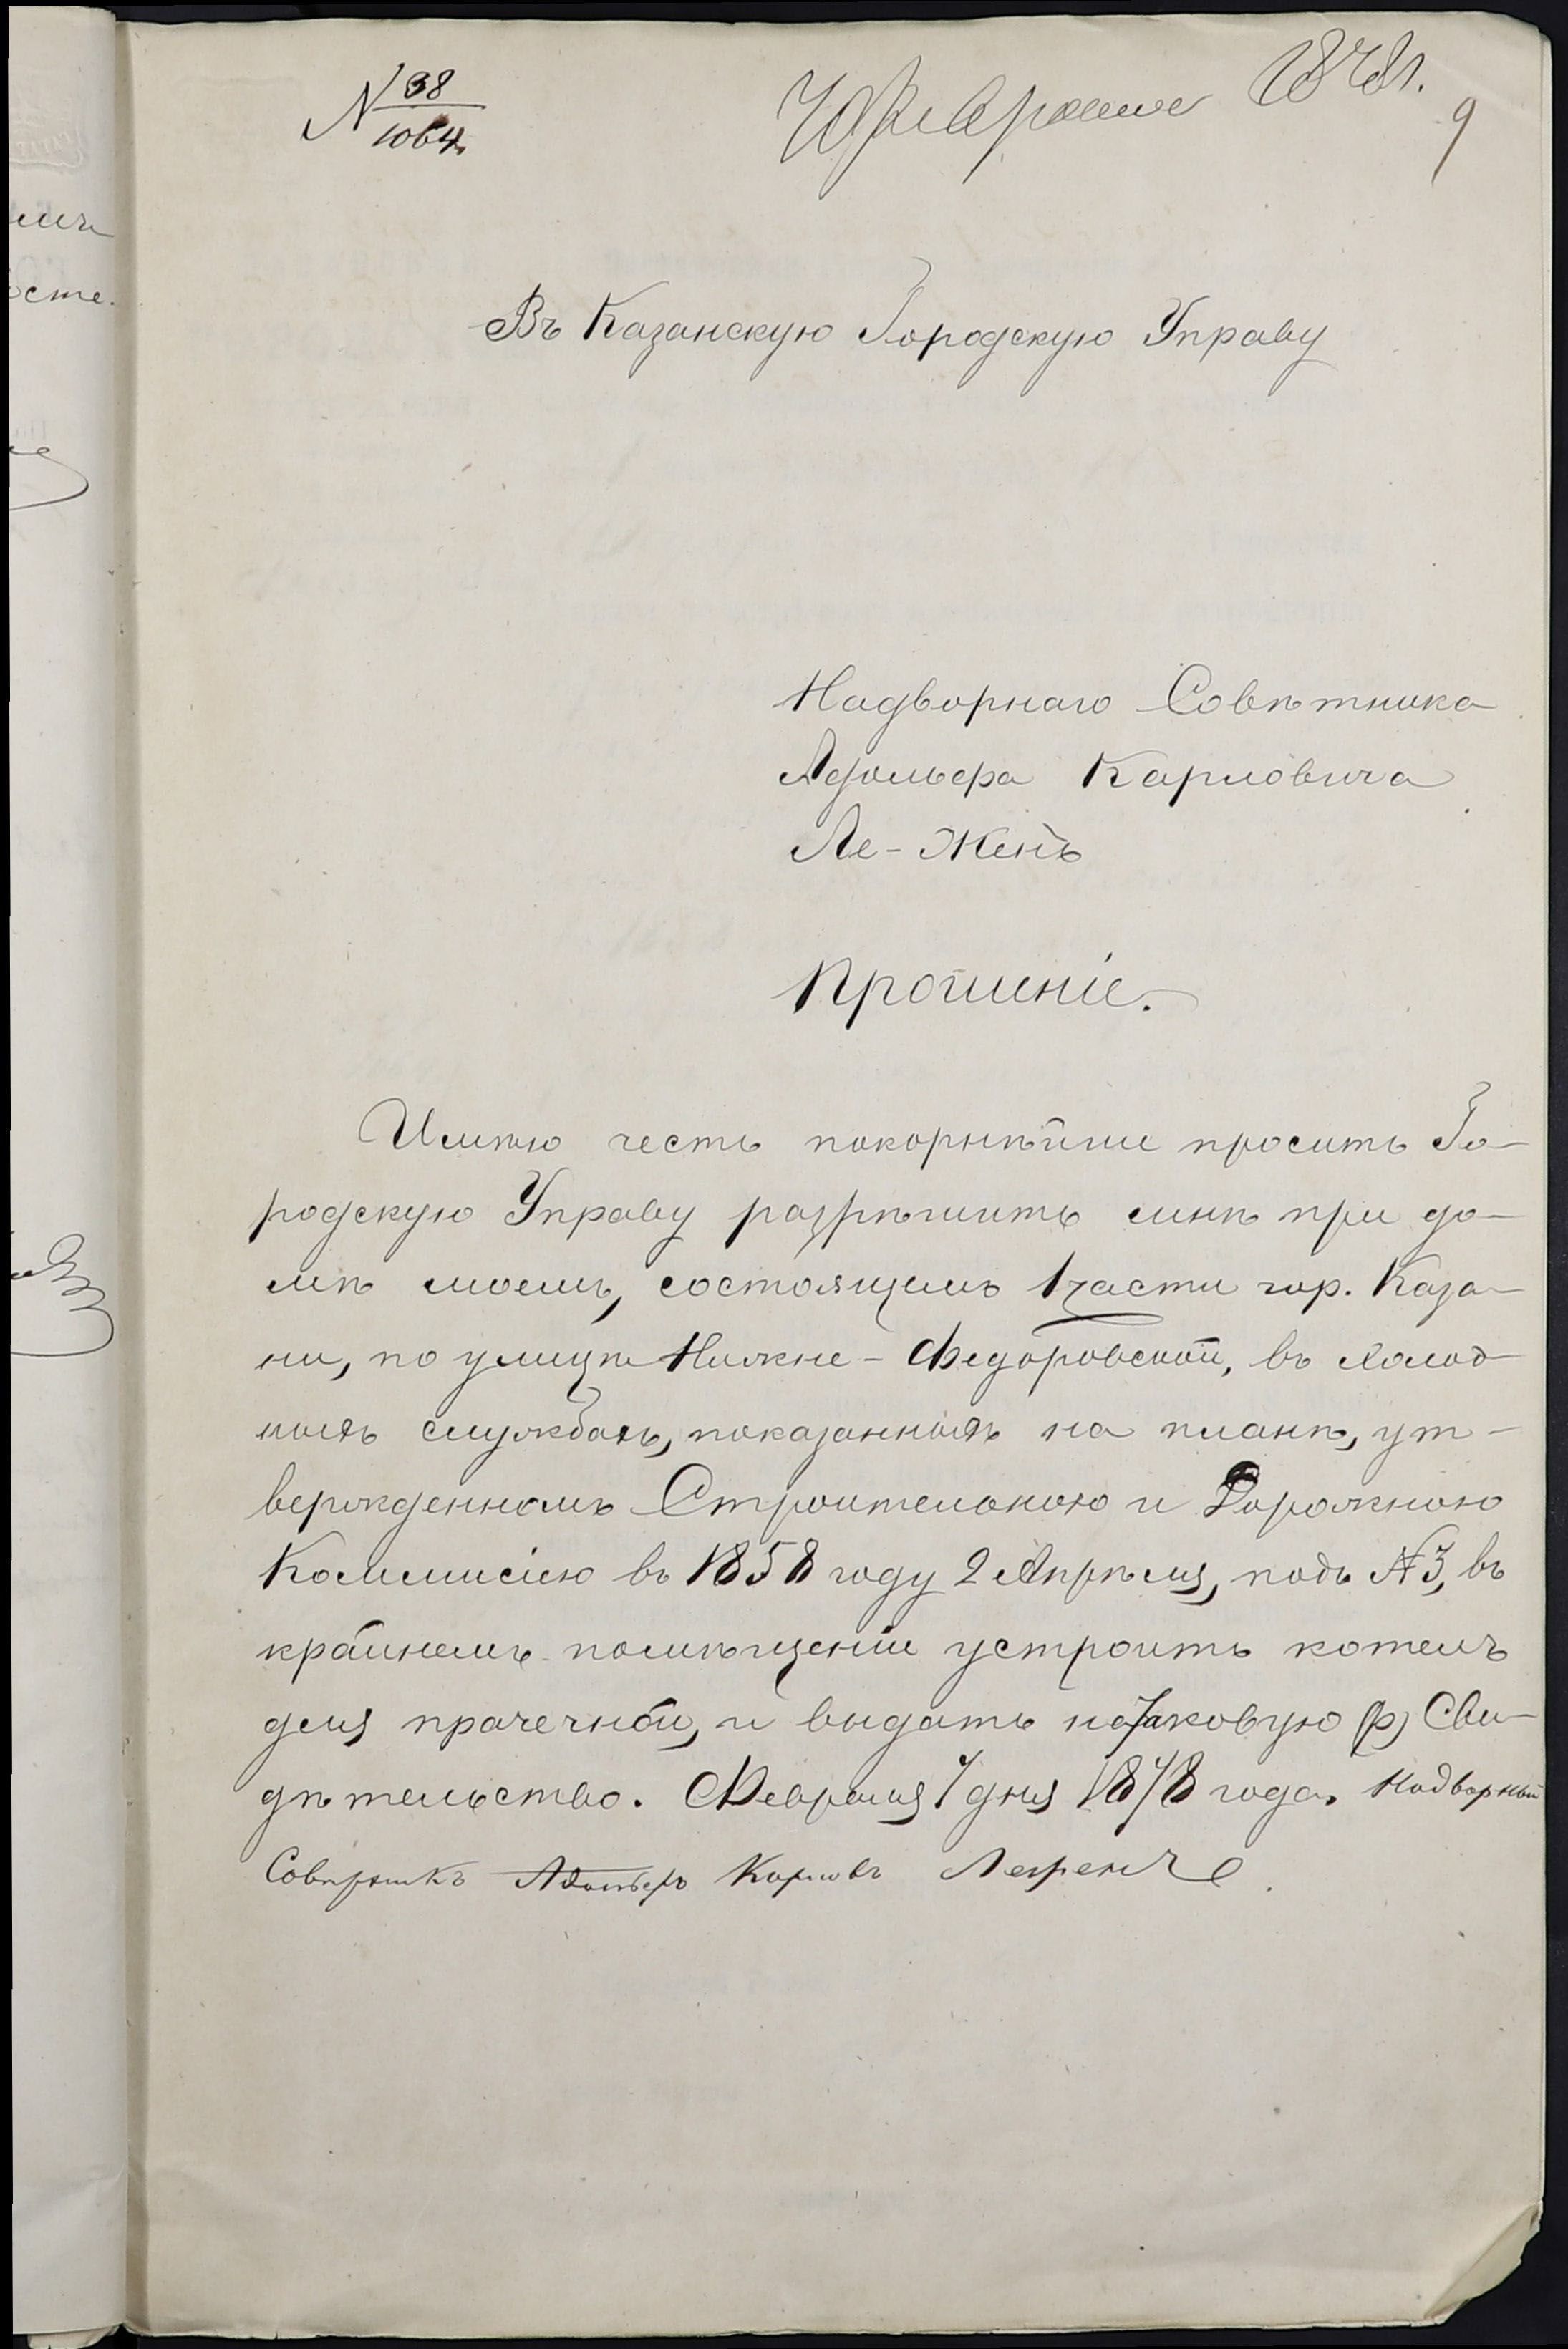 № 38/1064
7 Февраля 1878 г.
9
Въ Казанскую Городскую Управу
Надворнаго Совѣтника
Адольфа Карловича
Ле-Женъ
Прошеніе.
Имѣю честь покорнѣйше просить Го-
родскую Управу разрѣшить мнѣ при до-
мѣ моемъ, состоящемъ 1 части гор. Каза-
ни, по улицѣ Нижне-Федоровской, въ холод-
ныхъ службахъ, показанныхъ на планѣ, ут-
вержденномъ Строительною и Дорожною
Коммисіею въ 1858 году 2 Апрѣля, подъ №3, въ
крайнемъ помѣщеніи устроить котелъ
для прачечной, и выдать на таковую (р) Сви-
дѣтельство. Февраля 7 дня 1878 года. Надворный
Совѣтникъ Адольфъ Карловъ